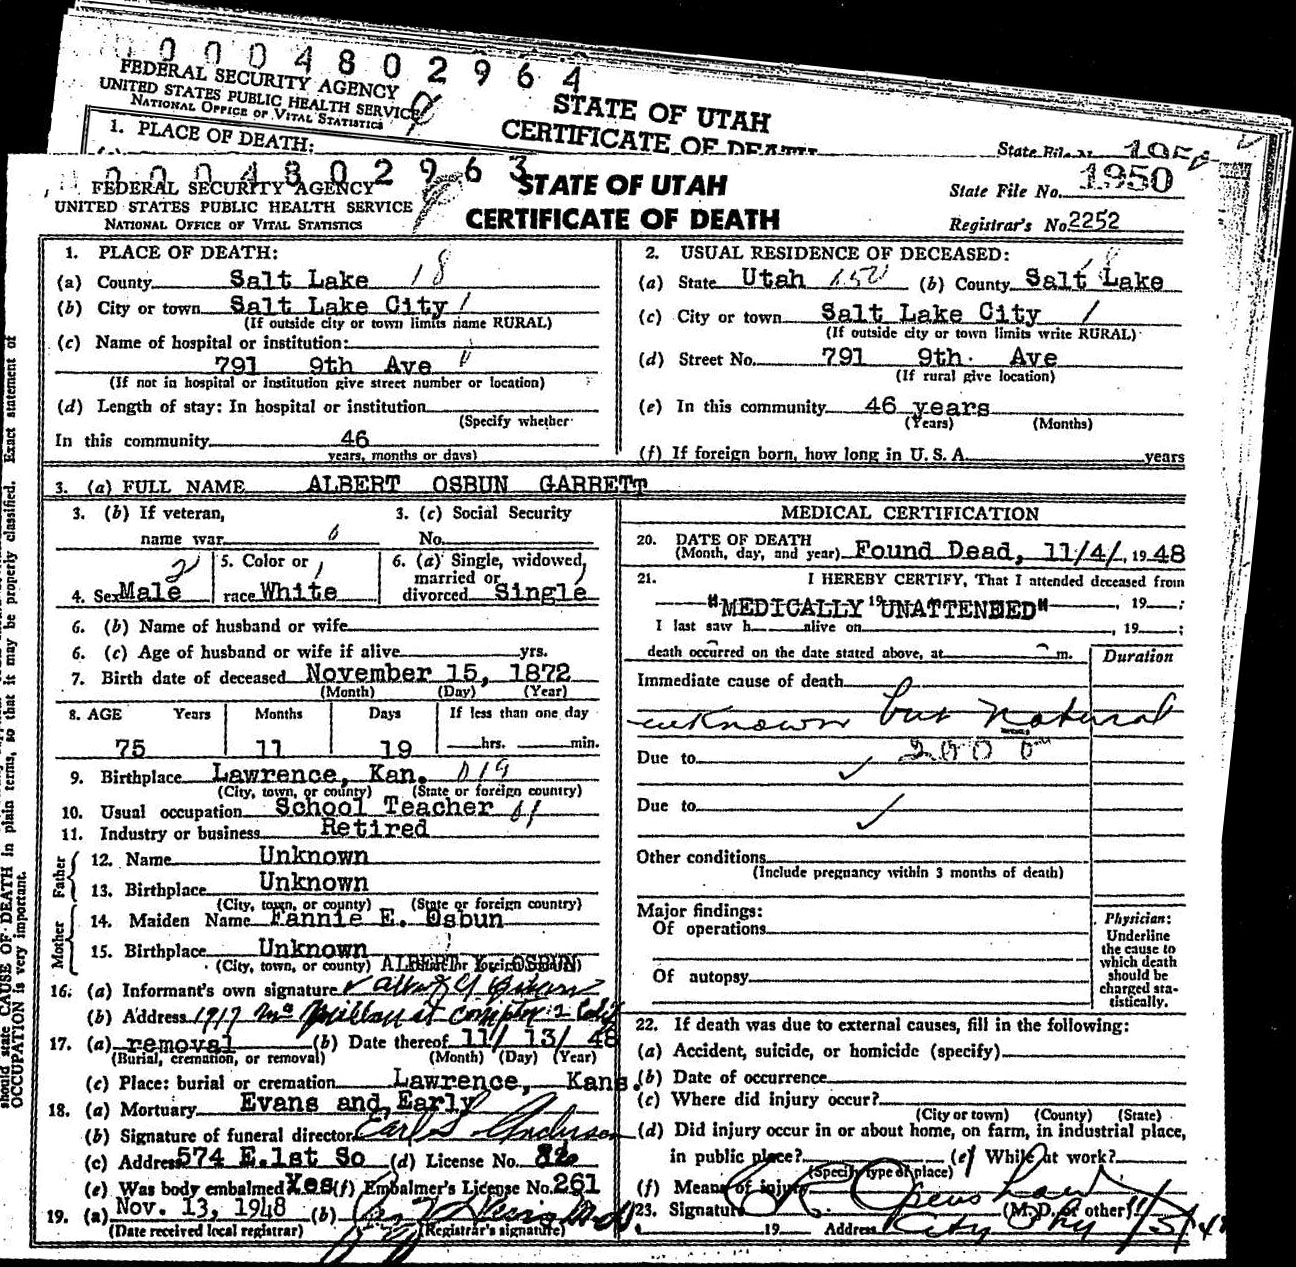 0 0 0 4 8 0 2 9 6 4
FEDERAL SECURITY AGENCY
UNITED STATES PUBLIC HEALTH SERVICE
NATIONAL OFFICE OF VITAL STATISTICS
STATE OF UTAH
CERTIFICATE OF DEATH
1. PLACE OF DEATH:
State File No.
0 0 0 4 8 0 2 9 6 3
FEDERAL SECURITY AGENCY
UNITED STATES PUBLIC HEALTH SERVICE
NATIONAL OFFICE OF VITAL STATISTICS
STATE OF UTAH
CERTIFICATE OF DEATH
State File No. 1950
Registrar's No. 2252
1. PLACE OF DEATH:
(a) County Salt Lake 18
(b) City or town Salt Lake City /
(If outside city or town limits name RURAL)
(c) Name of hospital or institution:
791 9th Ave
(If not in hospital or institution give street number or location)
(d) Length of stay: In hospital or institution
(Specify whether
In this community 46
years, months or days)
2. USUAL RESIDENCE OF DECEASED:
(a) State Utah (b) County Salt Lake
(c) City or town Salt Lake City /
(If outside city or town limits write RURAL)
(d) Street No. 791 9th Ave
(If rural give location)
(e) In this community 46 years
(Years) (Months)
(f) If foreign born, how long in U. S. A. years
3. (a) FULL NAME ALBERT OSBUN GARRETT
3. (b) If veteran,
name war
3. (c) Social Security
No.
4. Sex Male
5. Color or
race White
6. (a) Single, widowed,
married or
divorced Single
6. (b) Name of husband or wife
6. (c) Age of husband or wife if alive yrs.
7. Birth date of deceased November 15, 1872
(Month) (Day) (Year)
8. AGE Years Months Days If less than one day
75 11 19 hrs. min.
9. Birthplace Lawrence, Kan. 019
(City, town, or county) (State or foreign country)
10. Usual occupation School Teacher
11. Industry or business Retired
Father
12. Name Unknown
13. Birthplace Unknown
(City, town, or county) (State or foreign country)
Mother
14. Maiden Name Fannie E. Osbun
15. Birthplace Unknown
(City, town, or county) (State or foreign country)
ALBERT Y. OSBUN
16. (a) Informant's own signature
(b) Address 1917
17. (a) removal (b) Date thereof 11/ 13/ 48
(Burial, cremation, or removal) (Month) (Day) (Year)
(c) Place: burial or cremation Lawrence, Kans.
18. (a) Mortuary Evans and Early
(b) Signature of funeral director Earl S Anderson
(c) Address 574 E.1st So (d) License No.
(e) Was body embalmed Yes (f) Embalmer's License No. 261
19. (a) Nov. 13, 1948 (b)
(Date received local registrar) (Registrar's signature)
MEDICAL CERTIFICATION
20. DATE OF DEATH
(Month, day, and year) Found Dead, 11/4/, 1948
21. I HEREBY CERTIFY, That I attended deceased from
"MEDICALLY 19 UNATTENDED" , 19 ;
I last saw h alive on , 19 ;
death occurred on the date stated above, at m.
Duration
Immediate cause of death
unknown but Natural
Due to
Due to
Other conditions
(Include pregnancy within 3 months of death)
Major findings:
Of operations
Of autopsy
Physician:
Underline
the cause to
which death
should be
charged sta-
tistically.
22. If death was due to external causes, fill in the following:
(a) Accident, suicide, or homicide (specify)
(b) Date of occurrence
(c) Where did injury occur?
(City or town) (County) (State)
(d) Did injury occur in or about home, on farm, in industrial place,
in public place? (e) While at work?
(Specify type of place)
(f) Means of injury
23. Signature (M. D. or other)
19 Address City
should state CAUSE OF DEATH in plain terms, so that it may be properly classified. Exact statement of
OCCUPATION is very important.